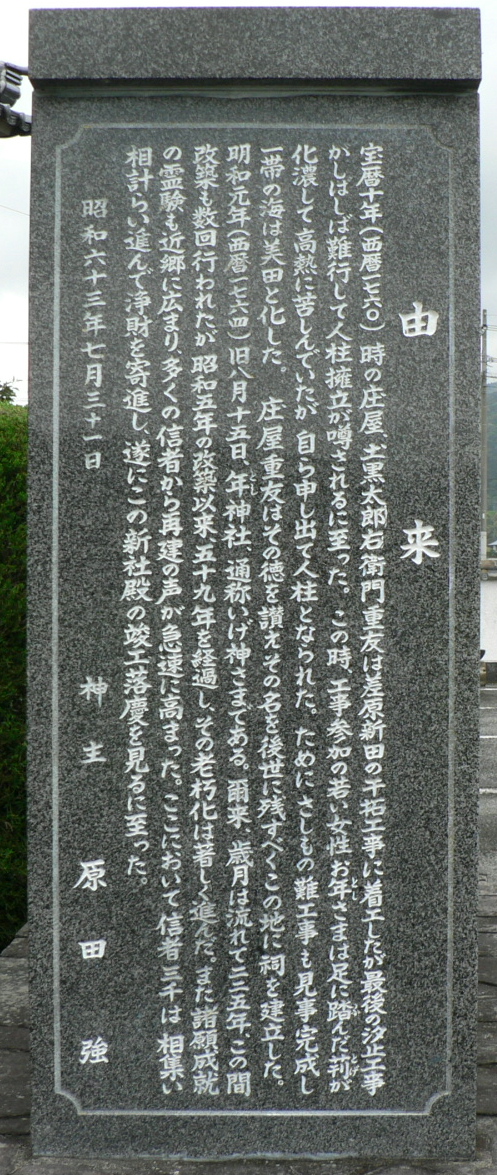 由来
宝暦十年(西暦一七六〇)時の庄屋、土黒太郎右衛門重友は差原新田の干拓工事に着工したが最後の汐止工事
がしばしば難行して人柱擁立が噂されるに至った。この時、工事参加の若い女性お年さまは足に踏んだ莿が
化濃して高熱に苦しんでいたが自ら申し出て人柱となられた。ためにさしもの難工事も見事完成し
一帯の海は美田と化した。庄屋重友はその徳を讃えその名を後世に残すべくこの地に祠を建立した。
明和元年(西暦一七六四)旧八月十五日、年神社、通称いげ神さまである。爾来、歳月は流れて二二五年、この間
改築も数回行われたが昭和五年の改築以来、五十九年を経過し、その老朽化は著しく進んだ。また諸願成就
の霊験も近郷に広まり、多くの信者から再建の声が急速に高まった。ここにおいて信者三千は相集い
相計らい進んで浄財を寄進し、遂にこの新社殿の竣工落慶を見るに至った。
昭和六十三年七月三十一日 神主 原田 強